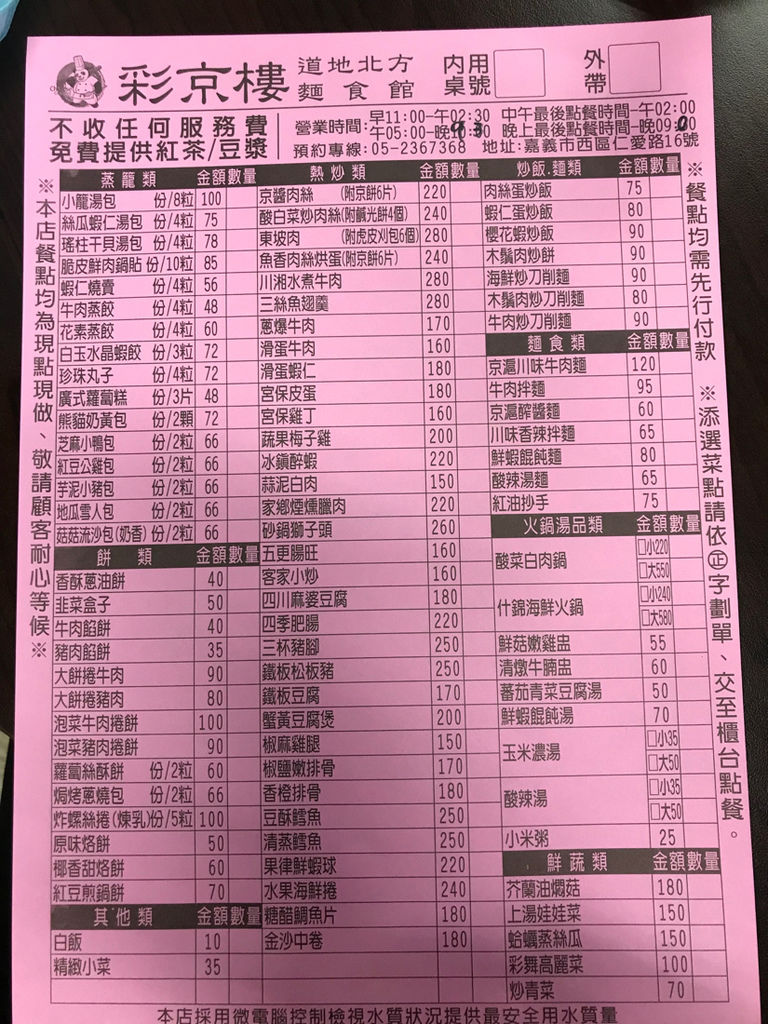 彩京樓 道地北方麵食館 內用桌號 外帶
不收任何服務費
免費提供紅茶/豆漿
營業時間:早11:00-午02:30 中午最後點餐時間-午02:00
午05:00-晚 晚上最後點餐時間-晚
預約專線:05-2367368 地址:嘉義市西區仁愛路16號
※本店餐點均為現點現做、敬請顧客耐心等候※
蒸籠類 金額 數量
小籠湯包 份/8粒 100
絲瓜蝦仁湯包 份/4粒 75
瑤柱干貝湯包 份/4粒 78
脆皮鮮肉鍋貼 份/10粒 85
蝦仁燒賣 份/4粒 56
牛肉蒸餃 份/4粒 48
花素蒸餃 份/4粒 60
白玉水晶蝦餃 份/3粒 72
珍珠丸子 份/4粒 72
廣式蘿蔔糕 份/3片 48
熊貓奶黃包 份/2顆 72
芝麻小鴨包 份/2粒 66
紅豆公雞包 份/2粒 66
芋泥小豬包 份/2粒 66
地瓜雪人包 份/2粒 66
菇菇流沙包(奶香) 份/2粒 66
餅類 金額 數量
香酥蔥油餅 40
韭菜盒子 50
牛肉餡餅 40
豬肉餡餅 35
大餅捲牛肉 90
大餅捲豬肉 80
泡菜牛肉捲餅 100
泡菜豬肉捲餅 90
蘿蔔絲酥餅 份/2粒 60
焗烤蔥燒包 份/2粒 66
炸螺絲捲(煉乳)份/5粒 100
原味烙餅 50
椰香甜烙餅 60
紅豆煎鍋餅 70
其他類 金額 數量
白飯 10
精緻小菜 35
熱炒類 金額 數量
京醬肉絲 (附京餅6片) 220
酸白菜炒肉絲(附鹹光餅4個) 240
東坡肉 (附虎皮刈包6個) 280
魚香肉絲烘蛋(附京餅6片) 240
川湘水煮牛肉 280
三絲魚翅羹 280
蔥爆牛肉 170
滑蛋牛肉 160
滑蛋蝦仁 180
宮保皮蛋 180
宮保雞丁 160
蔬果梅子雞 200
冰鎮醉蝦 220
蒜泥白肉 150
家鄉煙燻臘肉 220
砂鍋獅子頭 260
五更腸旺 160
客家小炒 160
四川麻婆豆腐 180
四季肥腸 220
三杯豬腳 250
鐵板松板豬 250
鐵板豆腐 170
蟹黃豆腐煲 200
椒麻雞腿 150
椒鹽嫩排骨 170
香橙排骨 180
豆酥鱈魚 250
清蒸鱈魚 250
果律鮮蝦球 220
水果海鮮捲 240
糖醋鯛魚片 180
金沙中卷 180
炒飯.麵類 金額 數量
肉絲蛋炒飯 75
蝦仁蛋炒飯 80
櫻花蝦炒飯 90
木鬚肉炒餅 90
海鮮炒刀削麵 90
木鬚肉炒刀削麵 80
牛肉炒刀削麵 90
麵食類 金額 數量
京滬川味牛肉麵 120
牛肉拌麵 95
京滬醡醬麵 60
川味香辣拌麵 65
鮮蝦餛飩麵 80
酸辣湯麵 65
紅油抄手 75
火鍋湯品類 金額 數量
酸菜白肉鍋 □小220
□大550
什錦海鮮火鍋 □小240
□大580
鮮菇嫩雞盅 55
清燉牛腩盅 60
蕃茄青菜豆腐湯 50
鮮蝦餛飩湯 70
玉米濃湯 □小35
□大50
酸辣湯 □小35
□大50
小米粥 25
鮮蔬類 金額 數量
芥蘭油燜菇 180
上湯娃娃菜 150
蛤蠣蒸絲瓜 150
彩舞高麗菜 100
炒青菜 70
※餐點均需先行付款 ※添選菜點請依㊣字劃單、交至櫃台點餐。
本店採用微電腦控制檢視水質狀況提供最安全用水質量